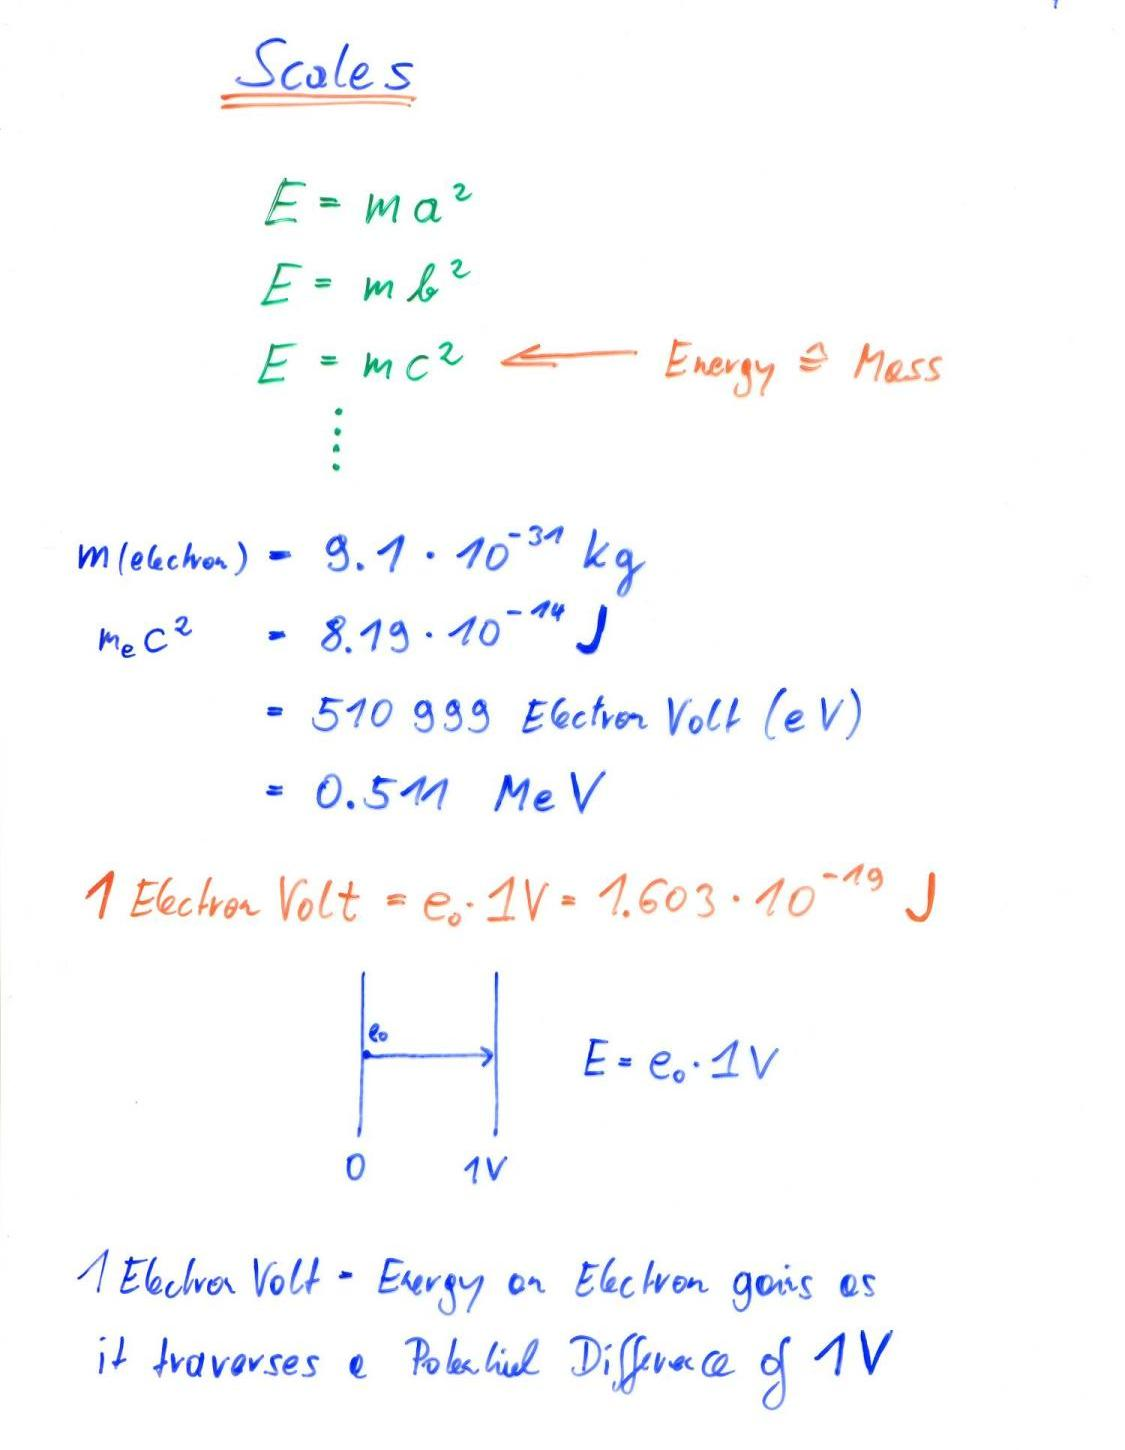 Scales
E = ma²
E = mb²
E = mc² ← Energy ≙ Mass
⋮
m(electron) = 9.1 · 10⁻³¹ kg
mₑc² = 8.19 · 10⁻¹⁴ J
= 510 999 Electron Volt (eV)
= 0.511 MeV
1 Electron Volt = e₀ · 1V = 1.603 · 10⁻¹⁹ J
e₀
E = e₀ · 1V
0 1V
1 Electron Volt = Energy an Electron gains as
it traverses a Potential Difference of 1V